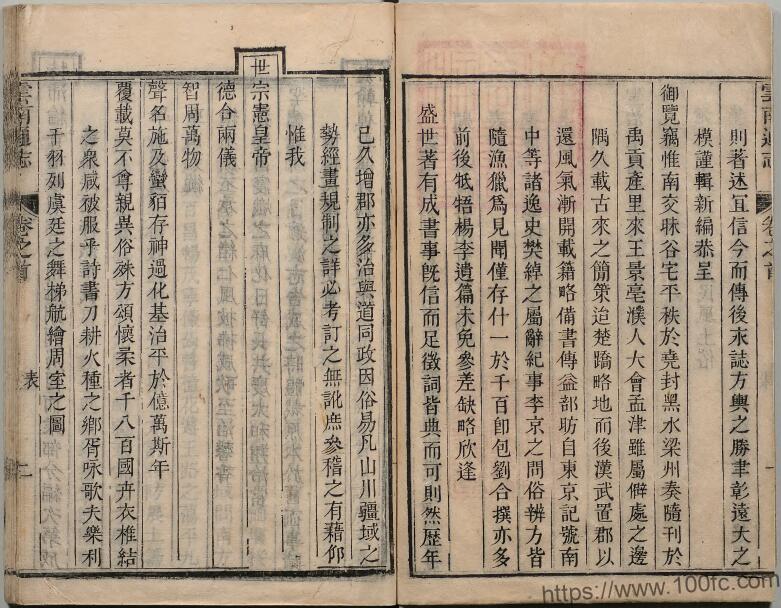 則著述宜信今而傳後永誌方輿之勝聿彰遠大之
模謹輯新編恭呈
御覽竊惟南交昧谷宅平秩於堯封黑水梁州奏隨刊於
禹貢產里來王景亳濮人大會孟津雖屬僻處之邊
隅久載古來之簡策迨楚蹻略地而後漢武置郡以
還風氣漸開載籍略備書傳益部昉自東京記號南
中等諸逸史樊綽之屬辭紀事李京之問俗辨方皆
隨漁獵爲見聞僅存什一於千百卽包劉合撰亦多
前後牴牾楊李遺篇未免參差缺略欣逢
盛世著有成書事旣信而足徵詞皆典而可則然歷年
雲南通志
卷之首
已久增郡亦多治與道同政因俗易凡山川疆域之
勢經畫規制之詳必考訂之無訛庶參稽之有藉仰
惟我
世宗憲皇帝
德合兩儀
智周萬物
聲名施及蠻貊存神過化基治平於億萬斯年
覆載莫不尊親異俗殊方頌懷柔者千八百國卉衣椎結
之衆咸被服乎詩書刀耕火種之鄉胥咏歌夫樂利
干羽列虞廷之舞梯航繪周室之圖
雲南通志
卷之首
表
二
https://www.100fc.com